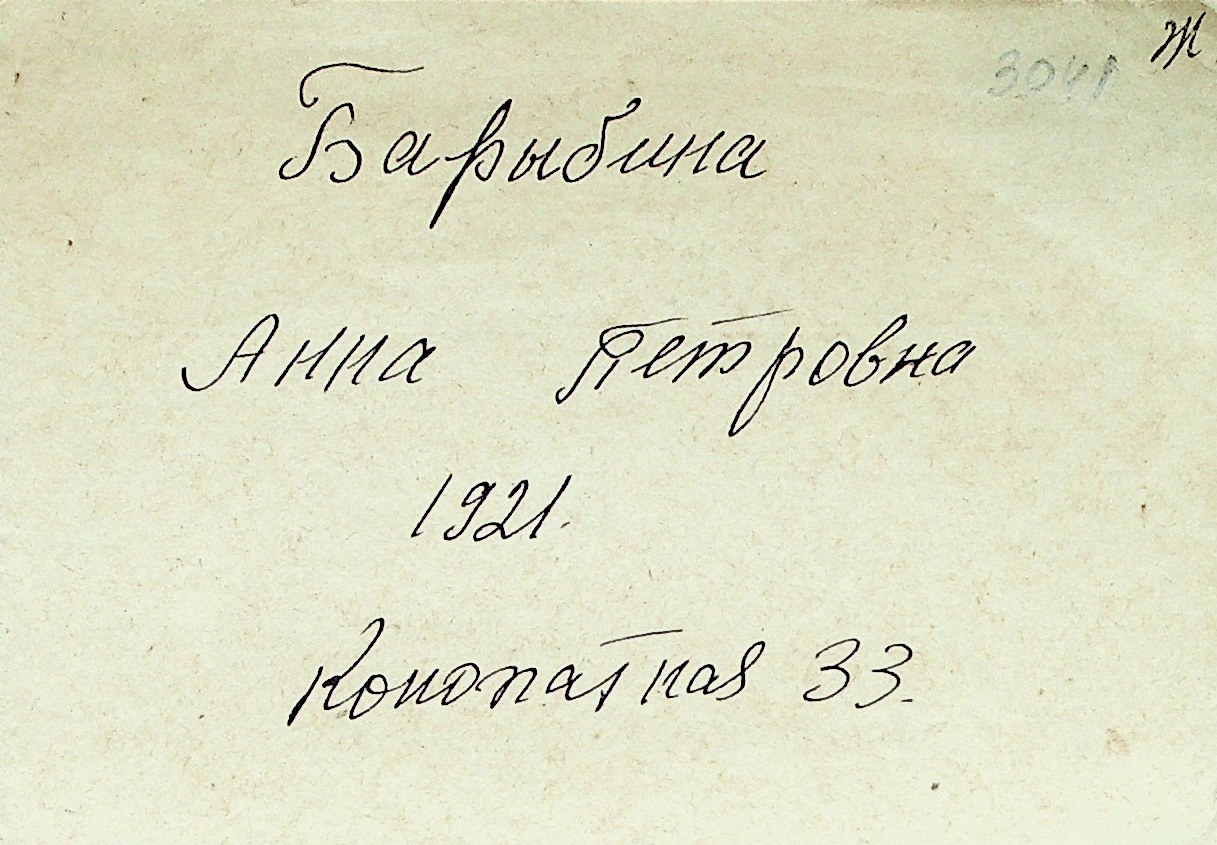 Ж
3041
Барыбина
Анна Петровна
1921.
Конопатная 33.